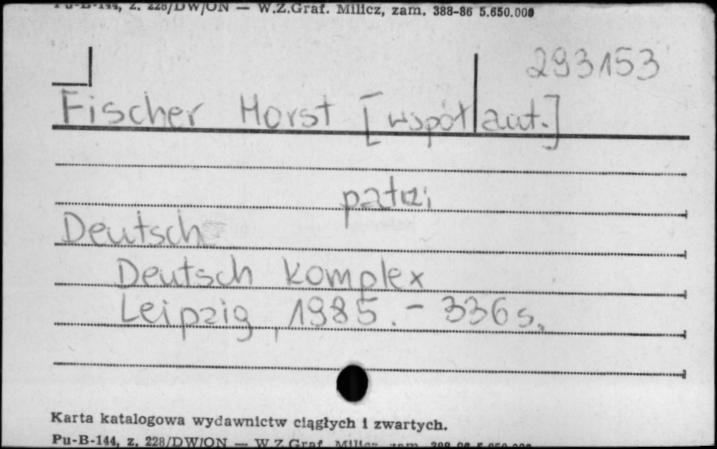 Pu-B-144, z. 228/DW/ON — W.Z.Graf. Milicz, zam. 388-86 5.650.000
293153
Fischer Horst [współaut.]
patrz:
Deutsch
Deutsch komplex
Leipzig, 1985. - 336 s.
Karta katalogowa wydawnictw ciągłych i zwartych.
Pu-B-144, z. 228/DW/ON — W.Z.Graf. Milicz, zam.